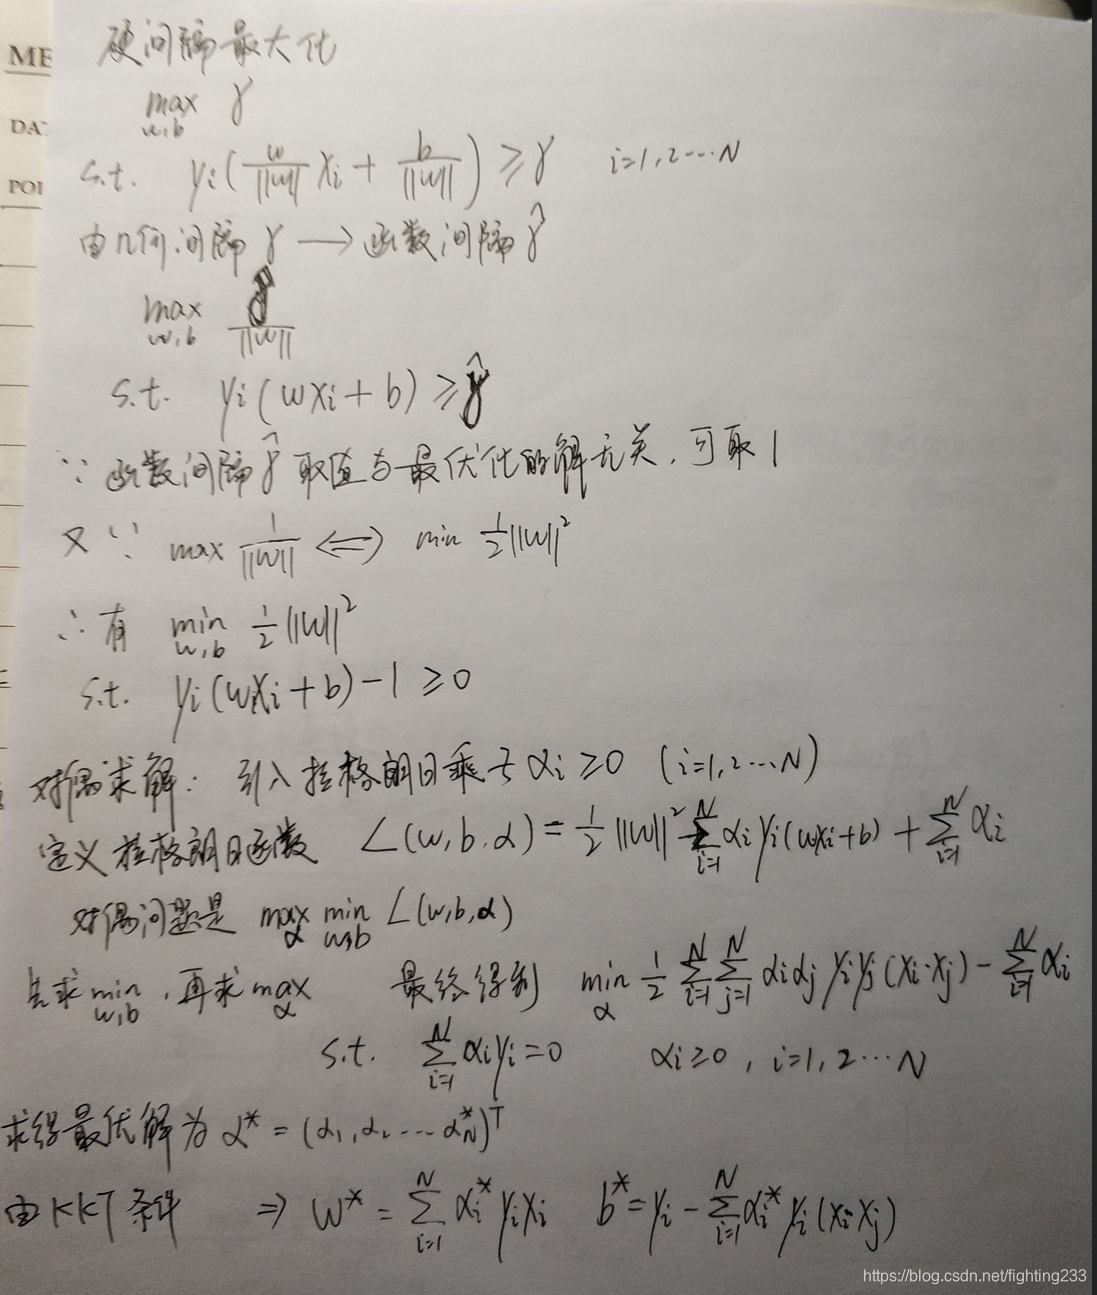 ME
DA
POI
硬间隔最大化
max γ
w,b
s.t. yi( w/||w|| xi + b/||w|| ) ≥ γ i=1,2…N
由几何间隔 γ → 函数间隔 γ̂
max γ̂/||w||
w,b
s.t. yi(wxi+b) ≥ γ̂
∵ 函数间隔 γ̂ 取值与最优化的解无关,可取1
又∵ max 1/||w|| ⇔ min 1/2||w||²
∴有 min 1/2||w||²
w,b
s.t. yi(wxi+b)-1 ≥ 0
对偶求解: 引入拉格朗日乘子 αi ≥ 0 (i=1,2…N)
定义拉格朗日函数 L(w,b,α) = 1/2||w||² - Σ_{i=1}^{N} αi yi(wxi+b) + Σ_{i=1}^{N} αi
对偶问题是 max_α min_{w,b} L(w,b,α)
先求 min_{w,b},再求 max_α 最终得到 min_α 1/2 Σ_{i=1}^{N} Σ_{j=1}^{N} αi αj yi yj (xi·xj) - Σ_{i=1}^{N} αi
s.t. Σ_{i=1}^{N} αi yi = 0 αi ≥ 0, i=1,2…N
求得最优解为 α* = (α1,α2…αN*)^T
由KKT条件 ⇒ w* = Σ_{i=1}^{N} αi* yi xi b* = yi - Σ_{i=1}^{N} αi* yi (xi·xj)
https://blog.csdn.net/fighting233